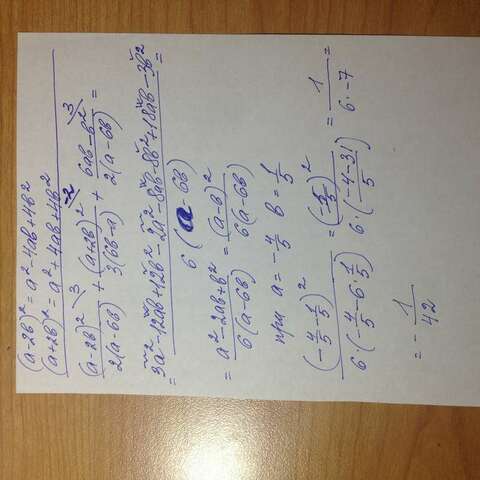 (a-2b)² = a² - 4ab + 4b²
(a+2b)² = a² + 4ab + 4b²
(a-2b)² \3 / 2(a-6b) + (a+2b)² \-2 / 3(6b-a) + 6ab - b² \3 / 2(a-6b) =
= 3a² - 12ab + 12b² - 2a² - 8ab - 8b² + 18ab - 3b² / 6(a-6b) =
= a² - 2ab + b² / 6(a-6b) = (a-b)² / 6(a-6b)
при a = -4/5 b = 1/5
(-4/5 - 1/5)² / 6·(-4/5 - 6·1/5) = (-5/5)² / 6·(-4-31/5) = 1 / 6·-7 =
= -1/42